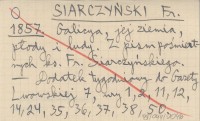 SIARCZYŃSKI Fr.
1857. Galicya, jej ziemia,
płody i ludy. Z pism pośmiert-
nych ks. Fr. Siarczyńskiego.
— Dodatek tygodniowy do Gazety
Lwowskiej 7, nry 1, 2, 11, 12,
14, 24, 35, 36, 37, 38, 50.